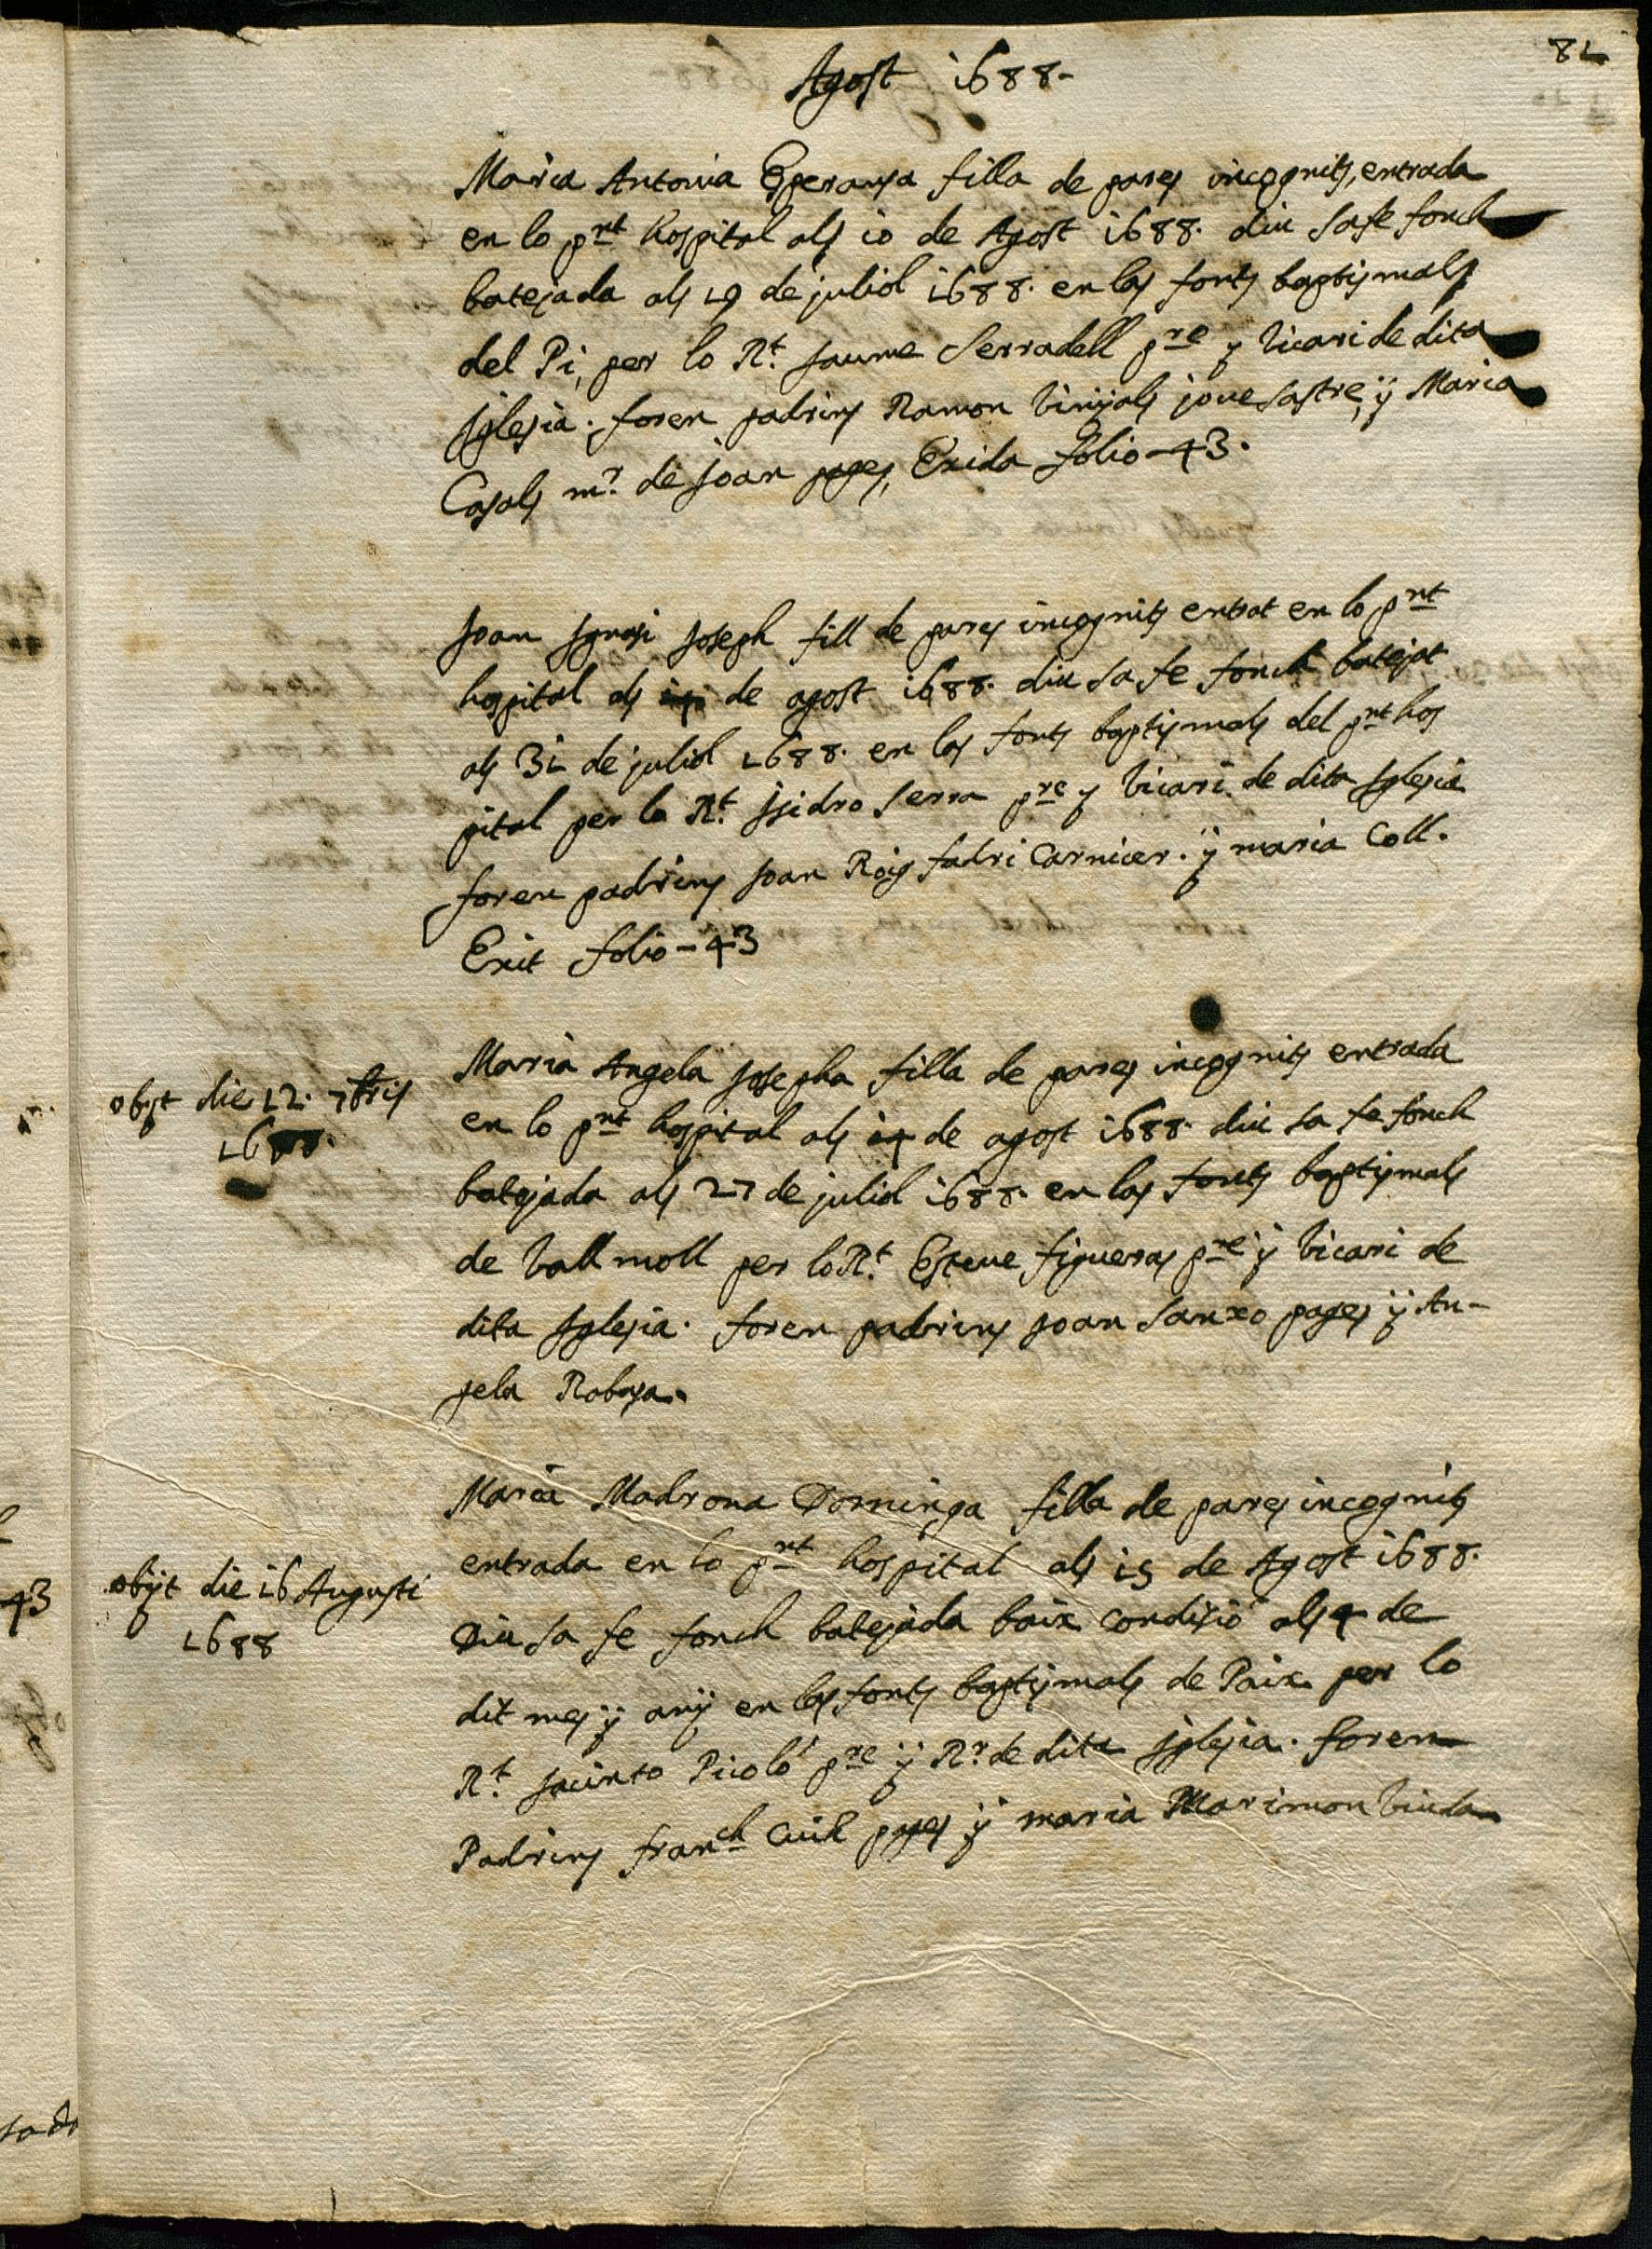 81
Agost 1688-
Maria Antonia Esperansa filla de pares incognits, entrada
en lo pnt hospital als 10 de Agost 1688. diu sa fe fonch
batejada als 19 de juliol 1688. en las fonts baptismals
del Pi, per lo Rt. Jaume Serradell pre y vicari de dita
Iglesia. foren padrins Ramon Vinyals jove sastre, ÿ Maria
Casals mr. de Joan pages, Exida folio-43.
Joan Ignasi Joseph fill de pares incognits entrat en lo pnt
hospital als de agost 1688. diu sa fe fonch batejat
als 31 de juliol 1688. en las fonts baptismals del pnt hos
pital per lo Rt. Isidro Serra pre y vicari de dita Iglesia
foren padrins Joan Roig fadri Carnicer. ÿ maria Coll.
Exit folio-43
Maria Angela Josepha filla de pares incognits entrada
obijt die 12. 7bris
1688.
en lo pnt hospital als 14 de agost 1688. diu sa fe fonch
batejada als 27 de juliol 1688. en las fonts baptismals
de Vallmoll per lo Rt. Esteve figueras pre ÿ vicari de
dita Iglesia. foren padrins Joan Sanxo pages ÿ An-
gela
Maria Madrona Dominga filla de pares incognits
entrada en lo pnt hospital als 15 de Agost 1688.
obijt die 16 Augusti
1688
Diu sa fe fonch batejada baix condisió als 4 de
dit mes ÿ anÿ en las fonts baptismals de Paix. per lo
Rt. Jacinto Picoló pre ÿ Rr. de dita iglesia. foren
Padrins franch pages ÿ maria Marimon viuda